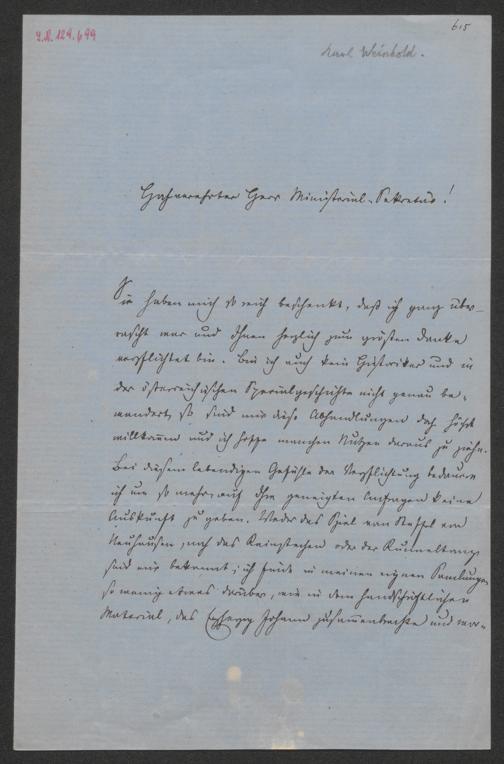 I.N. 129.699
615
Karl Weinhold.
Hochverehrter Herr Ministerial-Sekretär!
Sie haben mich so reich beschenkt, daß ich ganz über-
rascht war und Ihnen herzlich zum größten Danke
verpflichtet bin. Bin ich auch kein Historiker und in
der österreichischen Spezialgeschichte nicht genau be-
wandert, so sind mir diese Abhandlungen doch höchst
willkommen und ich hoffe manchen Nutzen daraus zu ziehn.
Bei diesem lebendigen Gefühle der Verpflichtung bedaure
ich um so mehr, auf Ihre geneigten Anfragen keine
Auskunft zu geben. Weder das Spiel von
Neuhausen, noch das oder der
sind mir bekannt; ich finde in meinen eignen Samlungen
so wenig etwas darüber, wie in dem handschriftlichen
Material, das Erzherzog Johann zusammenbrachte und wor-